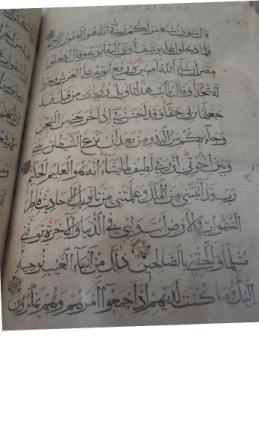 قال سوف استغفر لكم ربي انه هو الغفور الرحيم
فلما دخلوا على يوسف اوى اليه ابويه وقال ادخلوا
مصر ان شاء الله امنين ورفع ابويه على العرش وخروا
له سجدا وقال يا ابت هذا تاويل رؤياي من قبل قد
جعلها ربي حقا وقد احسن بي اذ اخرجني من السجن
وجاء بكم من البدو من بعد ان نزغ الشيطان بيني
وبين اخوتي ان ربي لطيف لما يشاء انه هو العليم الحكيم
رب قد اتيتني من الملك وعلمتني من تاويل الاحاديث فاطر
السموات والارض انت وليي في الدنيا والاخرة توفني
مسلما والحقني بالصالحين ذلك من انباء الغيب نوحيه
اليك وما كنت لديهم اذ اجمعوا امرهم وهم يمكرون